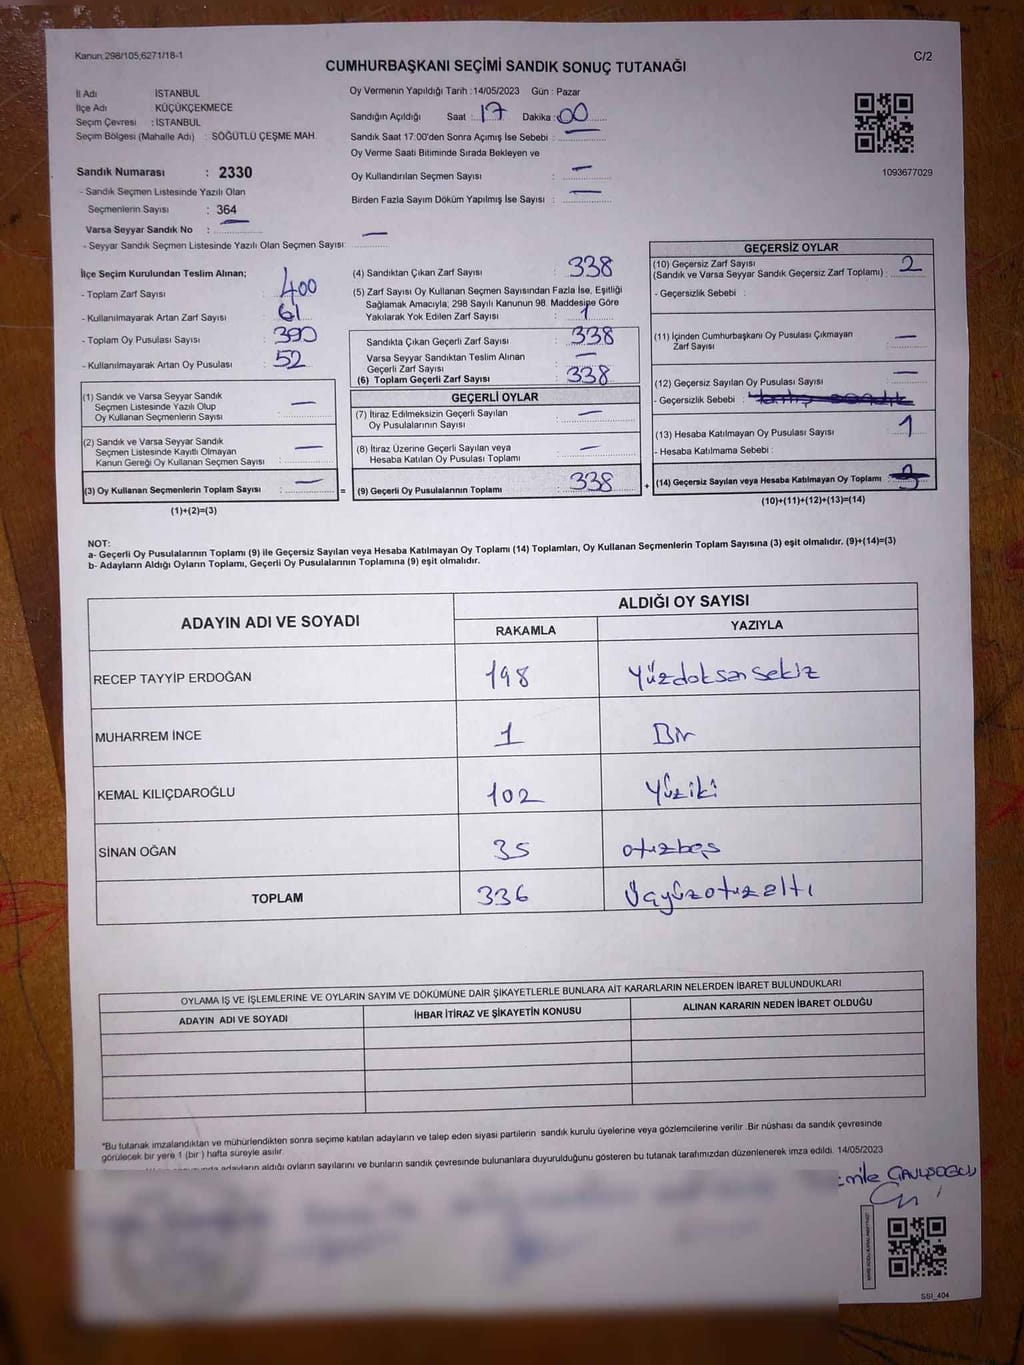 Kanun:298/105;6271/18-1
C/2
CUMHURBAŞKANI SEÇİMİ SANDIK SONUÇ TUTANAĞI
İl Adı İSTANBUL
İlçe Adı KÜÇÜKÇEKMECE
Seçim Çevresi : İSTANBUL
Seçim Bölgesi (Mahalle Adı) : SÖĞÜTLÜ ÇEŞME MAH.
Oy Vermenin Yapıldığı Tarih :14/05/2023 Gün : Pazar
Sandığın Açıldığı Saat : 17 Dakika : 00
Sandık Saat 17:00'den Sonra Açımış İse Sebebi : —
Oy Verme Saati Bitiminde Sırada Bekleyen ve
Oy Kullandırılan Seçmen Sayısı : —
Birden Fazla Sayım Döküm Yapılmış İse Sayısı : —
1093677029
Sandık Numarası : 2330
- Sandık Seçmen Listesinde Yazılı Olan
Seçmenlerin Sayısı : 364
Varsa Seyyar Sandık No : —
- Seyyar Sandık Seçmen Listesinde Yazılı Olan Seçmen Sayısı: —
İlçe Seçim Kurulundan Teslim Alınan;
- Toplam Zarf Sayısı : 400
- Kullanılmayarak Artan Zarf Sayısı : 61
- Toplam Oy Pusulası Sayısı : 390
- Kullanılmayarak Artan Oy Pusulası : 52
(1) Sandık ve Varsa Seyyar Sandık
Seçmen Listesinde Yazılı Olup
Oy Kullanan Seçmenlerin Sayısı : —
(2) Sandık ve Varsa Seyyar Sandık
Seçmen Listesinde Kayıtlı Olmayan
Kanun Gereği Oy Kullanan Seçmen Sayısı : —
(3) Oy Kullanan Seçmenlerin Toplam Sayısı : —
(1)+(2)=(3)
=
(4) Sandıktan Çıkan Zarf Sayısı : 338
(5) Zarf Sayısı Oy Kullanan Seçmen Sayısından Fazla İse, Eşitliği
Sağlamak Amacıyla, 298 Sayılı Kanunun 98. Maddesine Göre
Yakılarak Yok Edilen Zarf Sayısı : 1
Sandıkta Çıkan Geçerli Zarf Sayısı : 338
Varsa Seyyar Sandıktan Teslim Alınan
Geçerli Zarf Sayısı : —
(6) Toplam Geçerli Zarf Sayısı : 338
GEÇERLİ OYLAR
(7) İtiraz Edilmeksizin Geçerli Sayılan
Oy Pusulalarının Sayısı : —
(8) İtiraz Üzerine Geçerli Sayılan veya
Hesaba Katılan Oy Pusulası Toplamı : —
(9) Geçerli Oy Pusulalarının Toplamı : 338
+
GEÇERSİZ OYLAR
(10) Geçersiz Zarf Sayısı
(Sandık ve Varsa Seyyar Sandık Geçersiz Zarf Toplamı) : 2
- Geçersizlik Sebebi :
(11) İçinden Cumhurbaşkanı Oy Pusulası Çıkmayan
Zarf Sayısı : —
(12) Geçersiz Sayılan Oy Pusulası Sayısı : —
- Geçersizlik Sebebi :
(13) Hesaba Katılmayan Oy Pusulası Sayısı : 1
- Hesaba Katılmama Sebebi :
(14) Geçersiz Sayılan veya Hesaba Katılmayan Oy Toplamı :
(10)+(11)+(12)+(13)=(14)
NOT:
a- Geçerli Oy Pusulalarının Toplamı (9) ile Geçersiz Sayılan veya Hesaba Katılmayan Oy Toplamı (14) Toplamları, Oy Kullanan Seçmenlerin Toplam Sayısına (3) eşit olmalıdır. (9)+(14)=(3)
b- Adayların Aldığı Oyların Toplamı, Geçerli Oy Pusulalarının Toplamına (9) eşit olmalıdır.
ADAYIN ADI VE SOYADI
ALDIĞI OY SAYISI
RAKAMLA YAZIYLA
RECEP TAYYİP ERDOĞAN 198 Yüzdoksansekiz
MUHARREM İNCE 1 Bir
KEMAL KILIÇDAROĞLU 102 Yüziki
SİNAN OĞAN 35 otuzbeş
TOPLAM 336 Üçyüzotuzaltı
OYLAMA İŞ VE İŞLEMLERİNE VE OYLARIN SAYIM VE DÖKÜMÜNE DAİR ŞİKAYETLERLE BUNLARA AİT KARARLARIN NELERDEN İBARET BULUNDUKLARI
ADAYIN ADI VE SOYADI İHBAR İTİRAZ VE ŞİKAYETİN KONUSU ALINAN KARARIN NEDEN İBARET OLDUĞU
*Bu tutanak imzalandıktan ve mühürlendikten sonra seçime katılan adayların ve talep eden siyasi partilerin sandık kurulu üyelerine veya gözlemcilerine verilir .Bir nüshası da sandık çevresinde
görülecek bir yere 1 (bir ) hafta süreyle asılır.
adayların aldığı oyların sayılarını ve bunların sandık çevresinde bulunanlara duyurulduğunu gösteren bu tutanak tarafımızdan düzenlenerek imza edildi. 14/05/2023
SSI_404